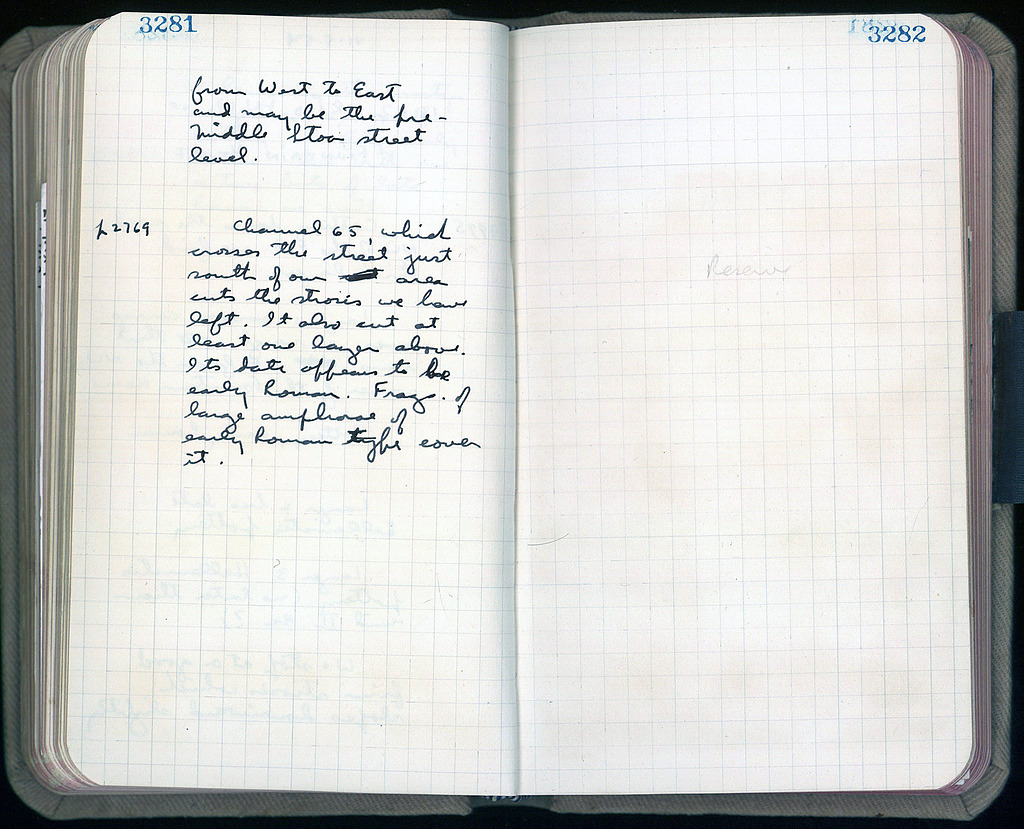 3281
from West to East
and may be the pre-
Middle Stoa street
level.
p2769
Channel 65, which
crosses the street just
south of our area
cuts the strosis we have
left. It also cut at
least one layer above.
Its date appears to be
early Roman. Frags. of
large amphorae of
early Roman type cover
it.
3282
Reserve